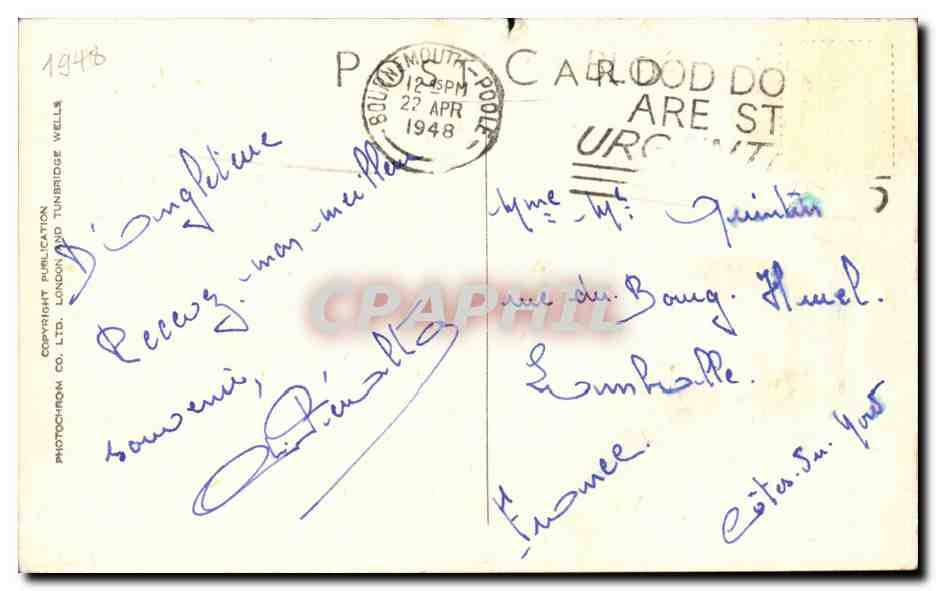 1948
POST CARD
BOURNEMOUTH-POOLE
12 45 PM
22 APR
1948
BLOOD DO
ARE ST
URGENT
COPYRIGHT PUBLICATION
PHOTOCHROM CO. LTD. LONDON AND TUNBRIDGE WELLS
D'Angleterre
Recevez mon meilleur
souvenir,
Mme Mt Quintin
rue du Bourg Huel.
Lamballe.
Côtes-du-Nord
France.
CPAPHIL